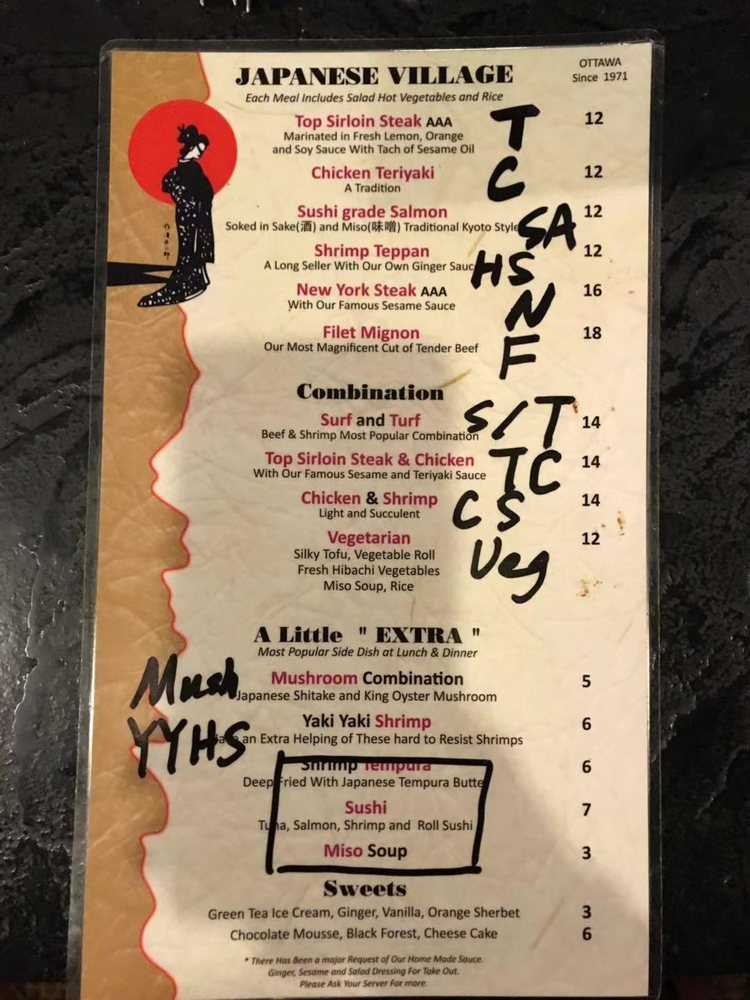 JAPANESE VILLAGE
OTTAWA
Since 1971
Each Meal Includes Salad Hot Vegetables and Rice
Top Sirloin Steak AAA T 12
Marinated in Fresh Lemon, Orange
and Soy Sauce With Tach of Sesame Oil
Chicken Teriyaki C 12
A Tradition
Sushi grade Salmon SA 12
Soked in Sake(酒) and Miso(味噌) Traditional Kyoto Style
Shrimp Teppan HS 12
A Long Seller With Our Own Ginger Sauce
New York Steak AAA N 16
With Our Famous Sesame Sauce
Filet Mignon F 18
Our Most Magnificent Cut of Tender Beef
Combination
Surf and Turf S/T 14
Beef & Shrimp Most Popular Combination
Top Sirloin Steak & Chicken TC 14
With Our Famous Sesame and Teriyaki Sauce
Chicken & Shrimp CS 14
Light and Succulent
Vegetarian Veg 12
Silky Tofu, Vegetable Roll
Fresh Hibachi Vegetables
Miso Soup, Rice
A Little " EXTRA "
Most Popular Side Dish at Lunch & Dinner
Mush Mushroom Combination 5
Japanese Shitake and King Oyster Mushroom
YYHS Yaki Yaki Shrimp 6
an Extra Helping of These hard to Resist Shrimps
Shrimp Tempura 6
Deep Fried With Japanese Tempura Butte
Sushi 7
Tuna, Salmon, Shrimp and Roll Sushi
Miso Soup 3
Sweets
Green Tea Ice Cream, Ginger, Vanilla, Orange Sherbet 3
Chocolate Mousse, Black Forest, Cheese Cake 6
* There Has Been a major Request of Our Home Made Sauce.
Ginger, Sesame and Salad Dressing For Take Out.
Please Ask Your Server For more.